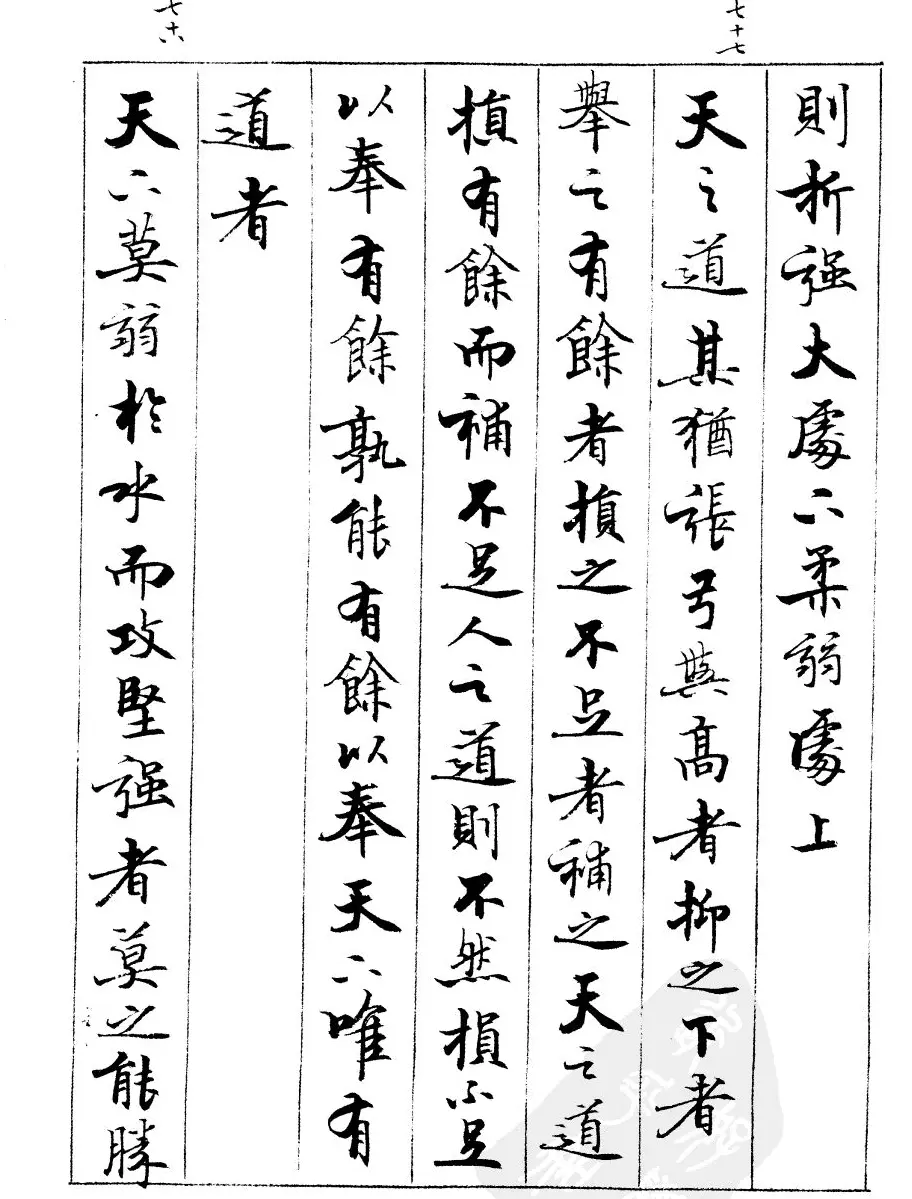 七十七
則折强大處下柔弱處上
天之道其猶張弓與高者抑之下者
舉之有餘者損之不足者補之天之道
損有餘而補不足人之道則不然損不足
以奉有餘孰能有餘以奉天下唯有
道者
七十八
天下莫弱於水而攻堅强者莫之能勝